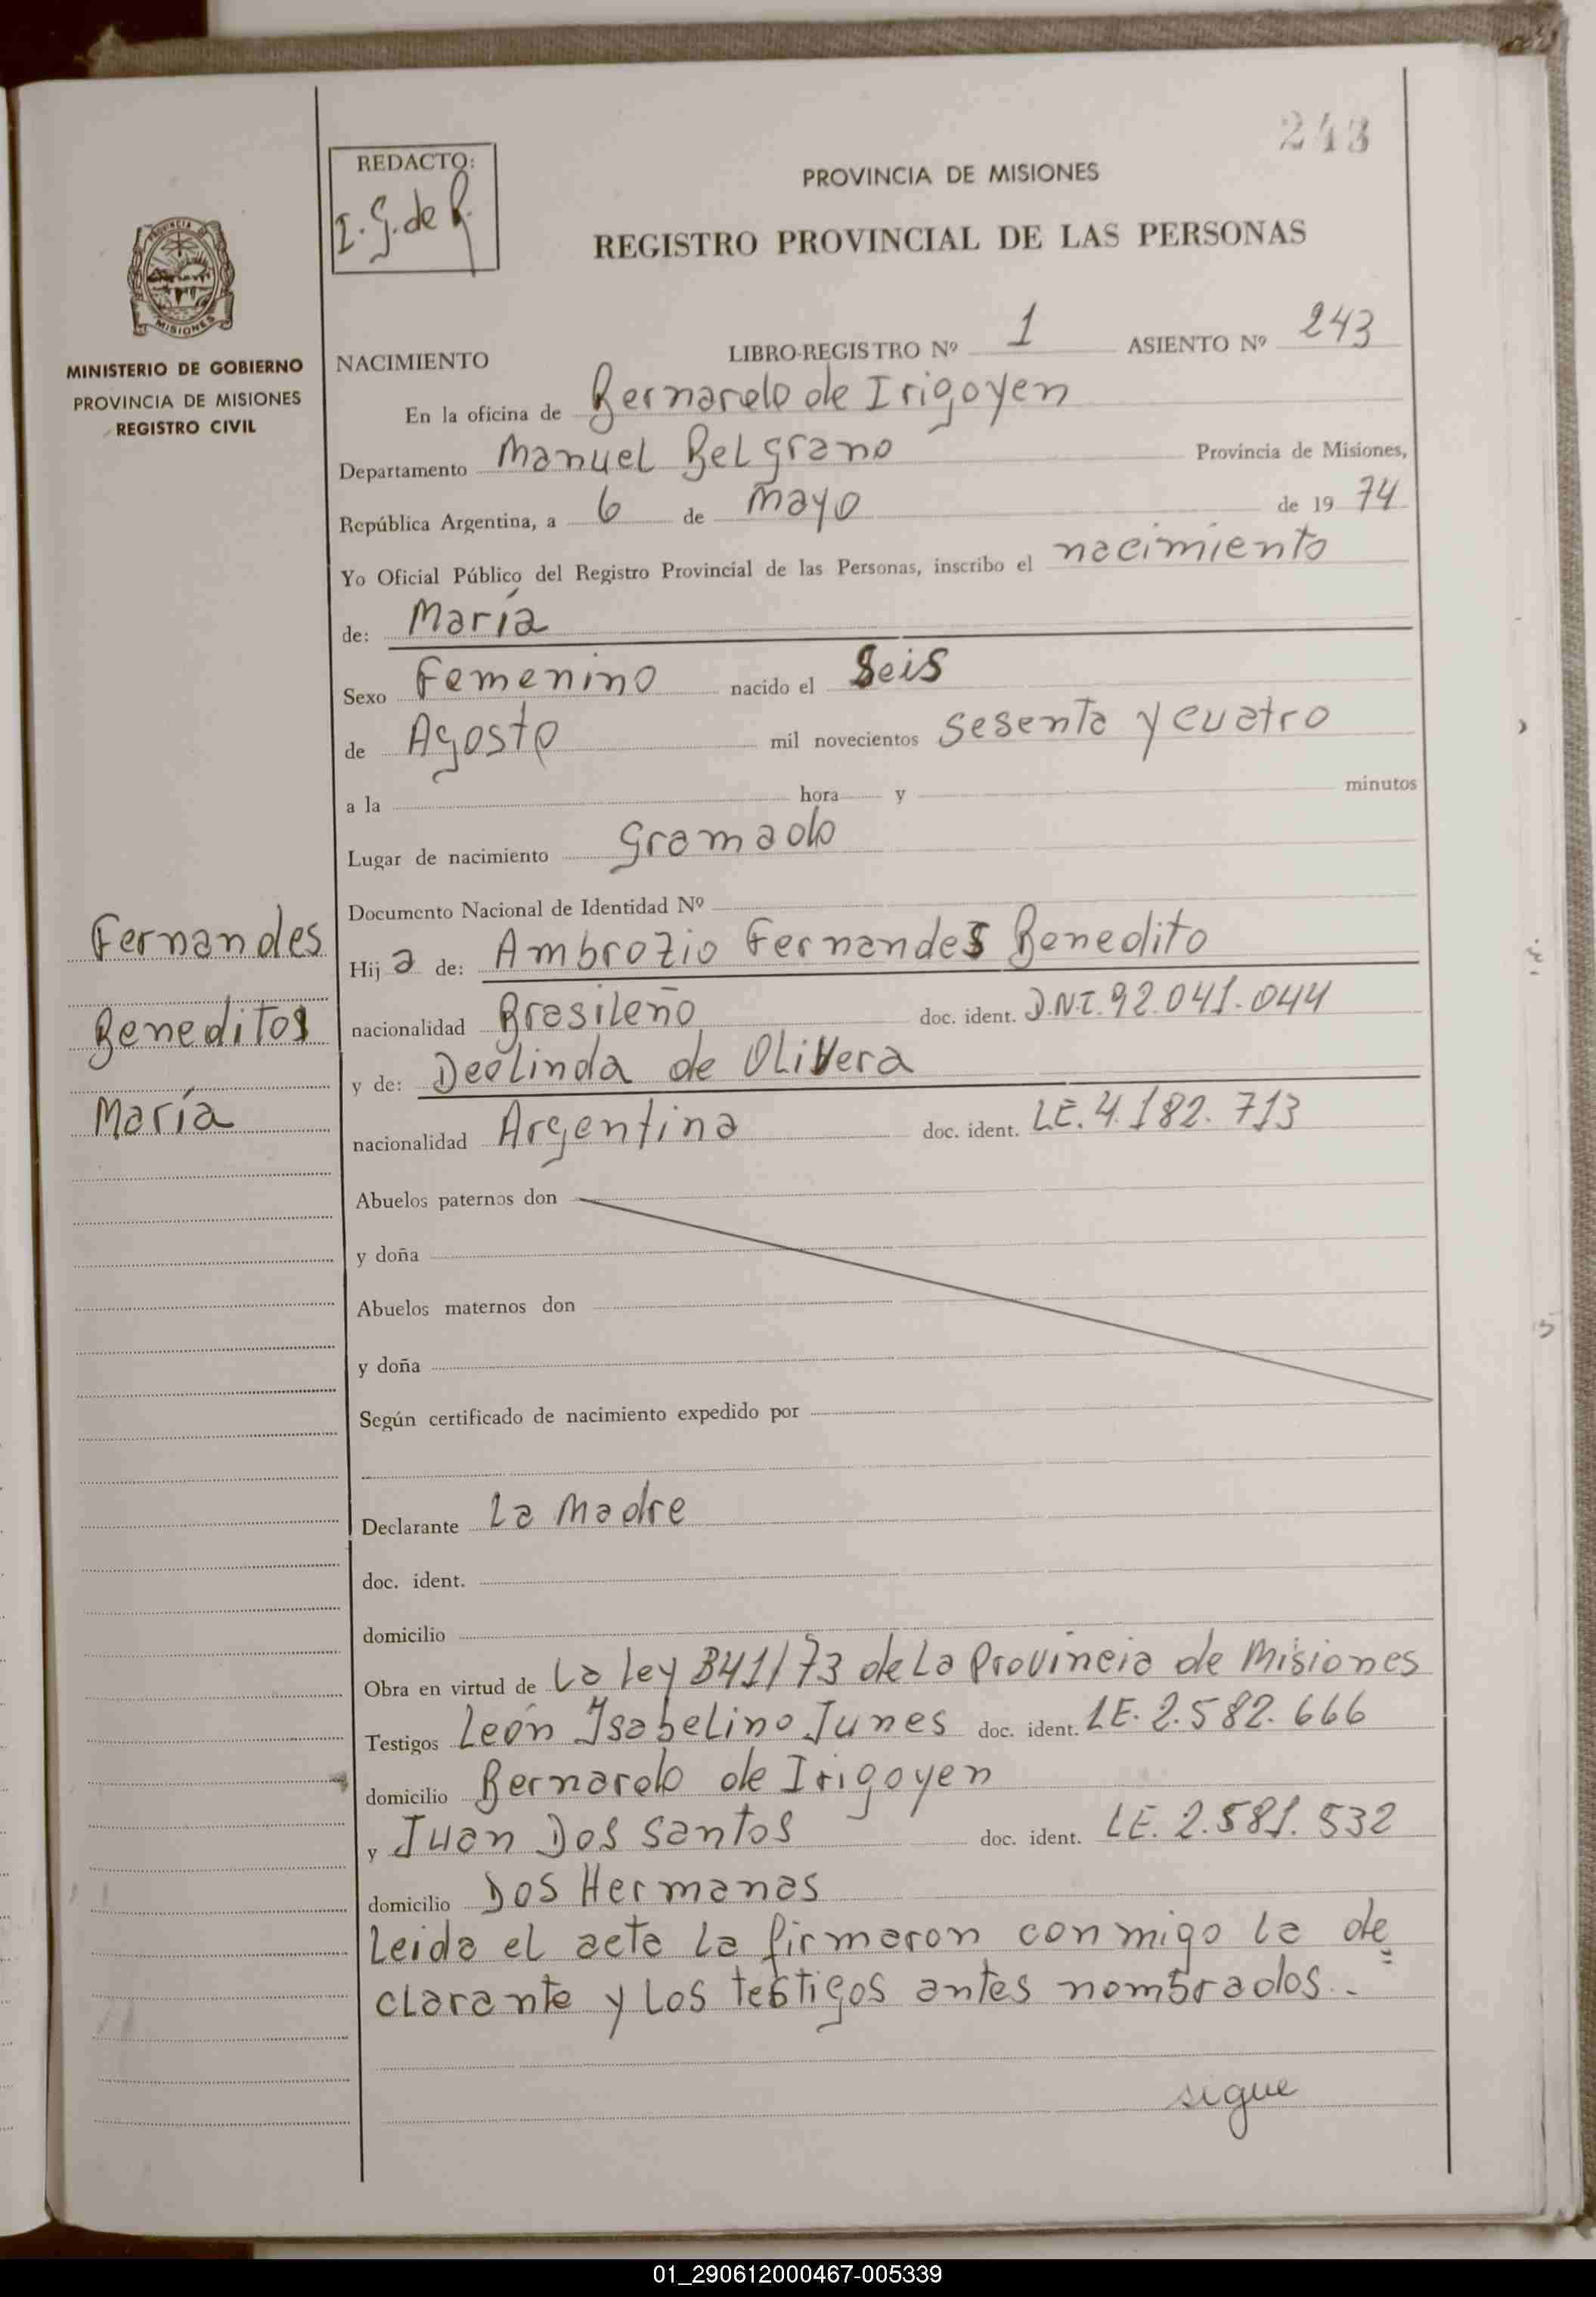 243
REDACTO:
I. G. de R.
PROVINCIA DE MISIONES
REGISTRO PROVINCIAL DE LAS PERSONAS
PROVINCIA DE
MISIONES
MINISTERIO DE GOBIERNO
PROVINCIA DE MISIONES
REGISTRO CIVIL
NACIMIENTO LIBRO-REGISTRO Nº 1 ASIENTO Nº 243
En la oficina de Bernardo de Irigoyen
Departamento Manuel Belgrano Provincia de Misiones,
República Argentina, a 6 de mayo de 19 74
Yo Oficial Público del Registro Provincial de las Personas, inscribo el nacimiento
de: María
Sexo Femenino nacido el Seis
de Agosto mil novecientos sesenta y cuatro
a la hora y minutos
Lugar de nacimiento Gramado
Documento Nacional de Identidad Nº
Fernandes
Beneditos
María
Hij a de: Ambrozio Fernandes Benedito
nacionalidad Brasileño doc. ident. D.N.I. 92.041.044
y de: Deolinda de Olivera
nacionalidad Argentina doc. ident. LE. 4.182.713
Abuelos paternos don
y doña
Abuelos maternos don
y doña
Según certificado de nacimiento expedido por
Declarante La Madre
doc. ident.
domicilio
Obra en virtud de La ley 341/73 de La Provincia de Misiones
Testigos León Ysabelino Junes doc. ident. LE. 2.582.666
domicilio Bernardo de Irigoyen
y Juan Dos Santos doc. ident. LE. 2.581.532
domicilio Dos Hermanas
Leida el acta la firmaron conmigo la de
clarante y los testigos antes nombrados.-
sigue
01_290612000467-005339